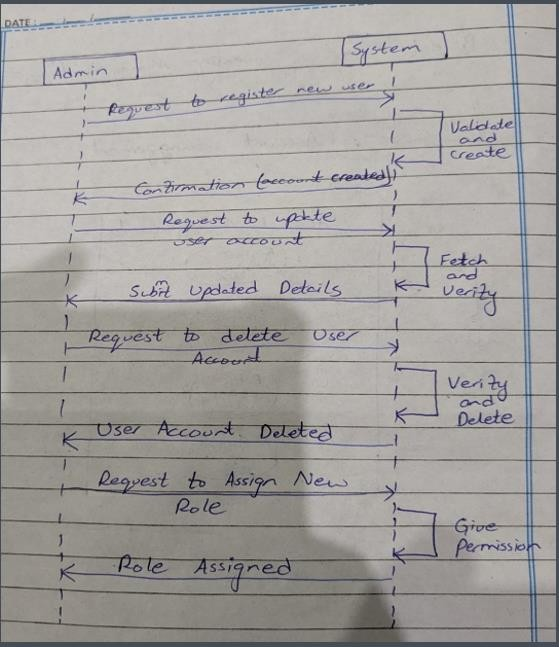 DATE: __/__/____
System
Admin
Request to register new user
Validate
and
create
Confirmation (account created)
Request to update
user account
Fetch
and
Verify
Submit Updated Details
Request to delete User
Account
Verify
and
Delete
User Account Deleted
Request to Assign New
Role
Give
Permission
Role Assigned